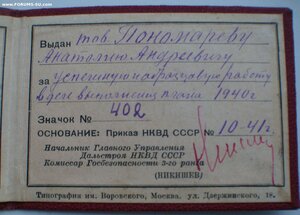 www.FORUMS-SU.com
Выдан тов. Пономареву
Анатолию Андреевичу
за успешную и образцовую работу
в деле выполнения плана 1940 г.
Значок № 402
ОСНОВАНИЕ: Приказ НКВД СССР № 10-41 г.
Начальник Главного Управления
Дальстроя НКВД СССР
Комиссар Госбезопасности 3-го ранга
(НИКИШЕВ)
Типография им. Воровского, Москва, ул. Дзержинского, 18.